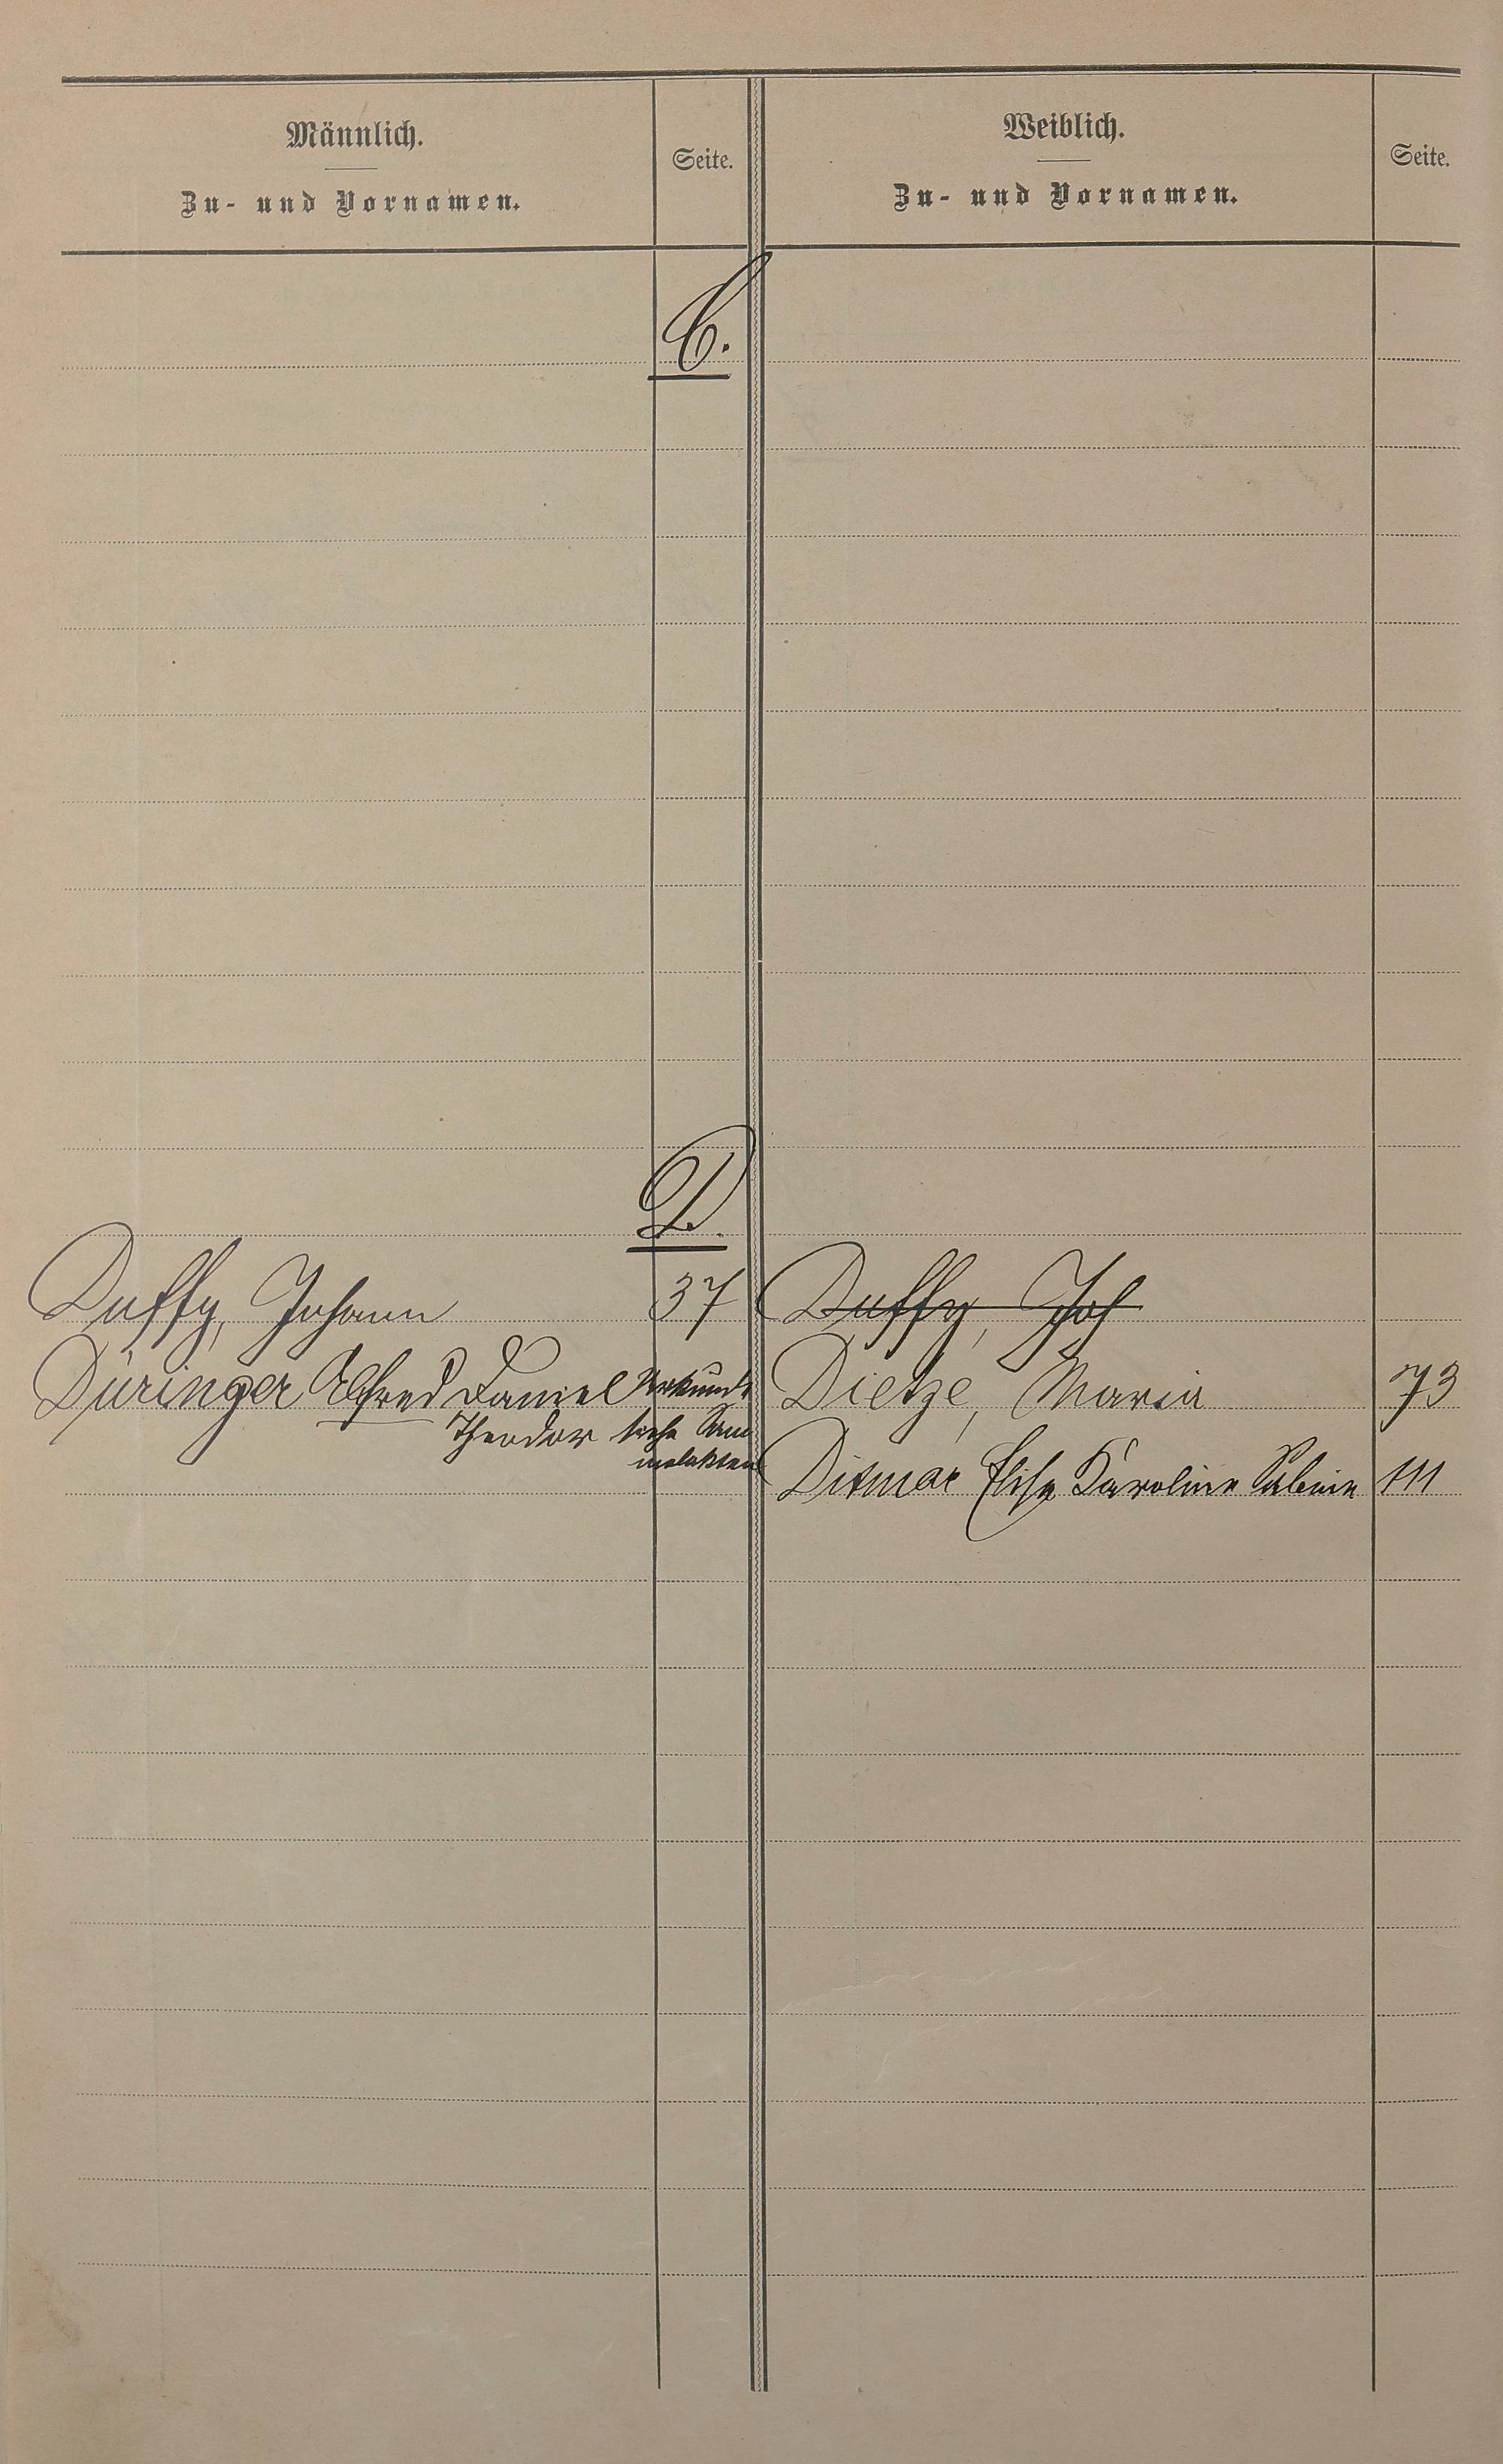 Männlich.
Zu- und Vornamen.
Seite.
Weiblich.
Zu- und Vornamen.
Seite.
C.
D.
Duffy, Johann 37
Duffy, Joh
Düringer Alfred Daniel Urkunde
Theodor siehe Sam
melakten
Dietze, Maria 73
Ditmar Elise Karoline Sabine 111